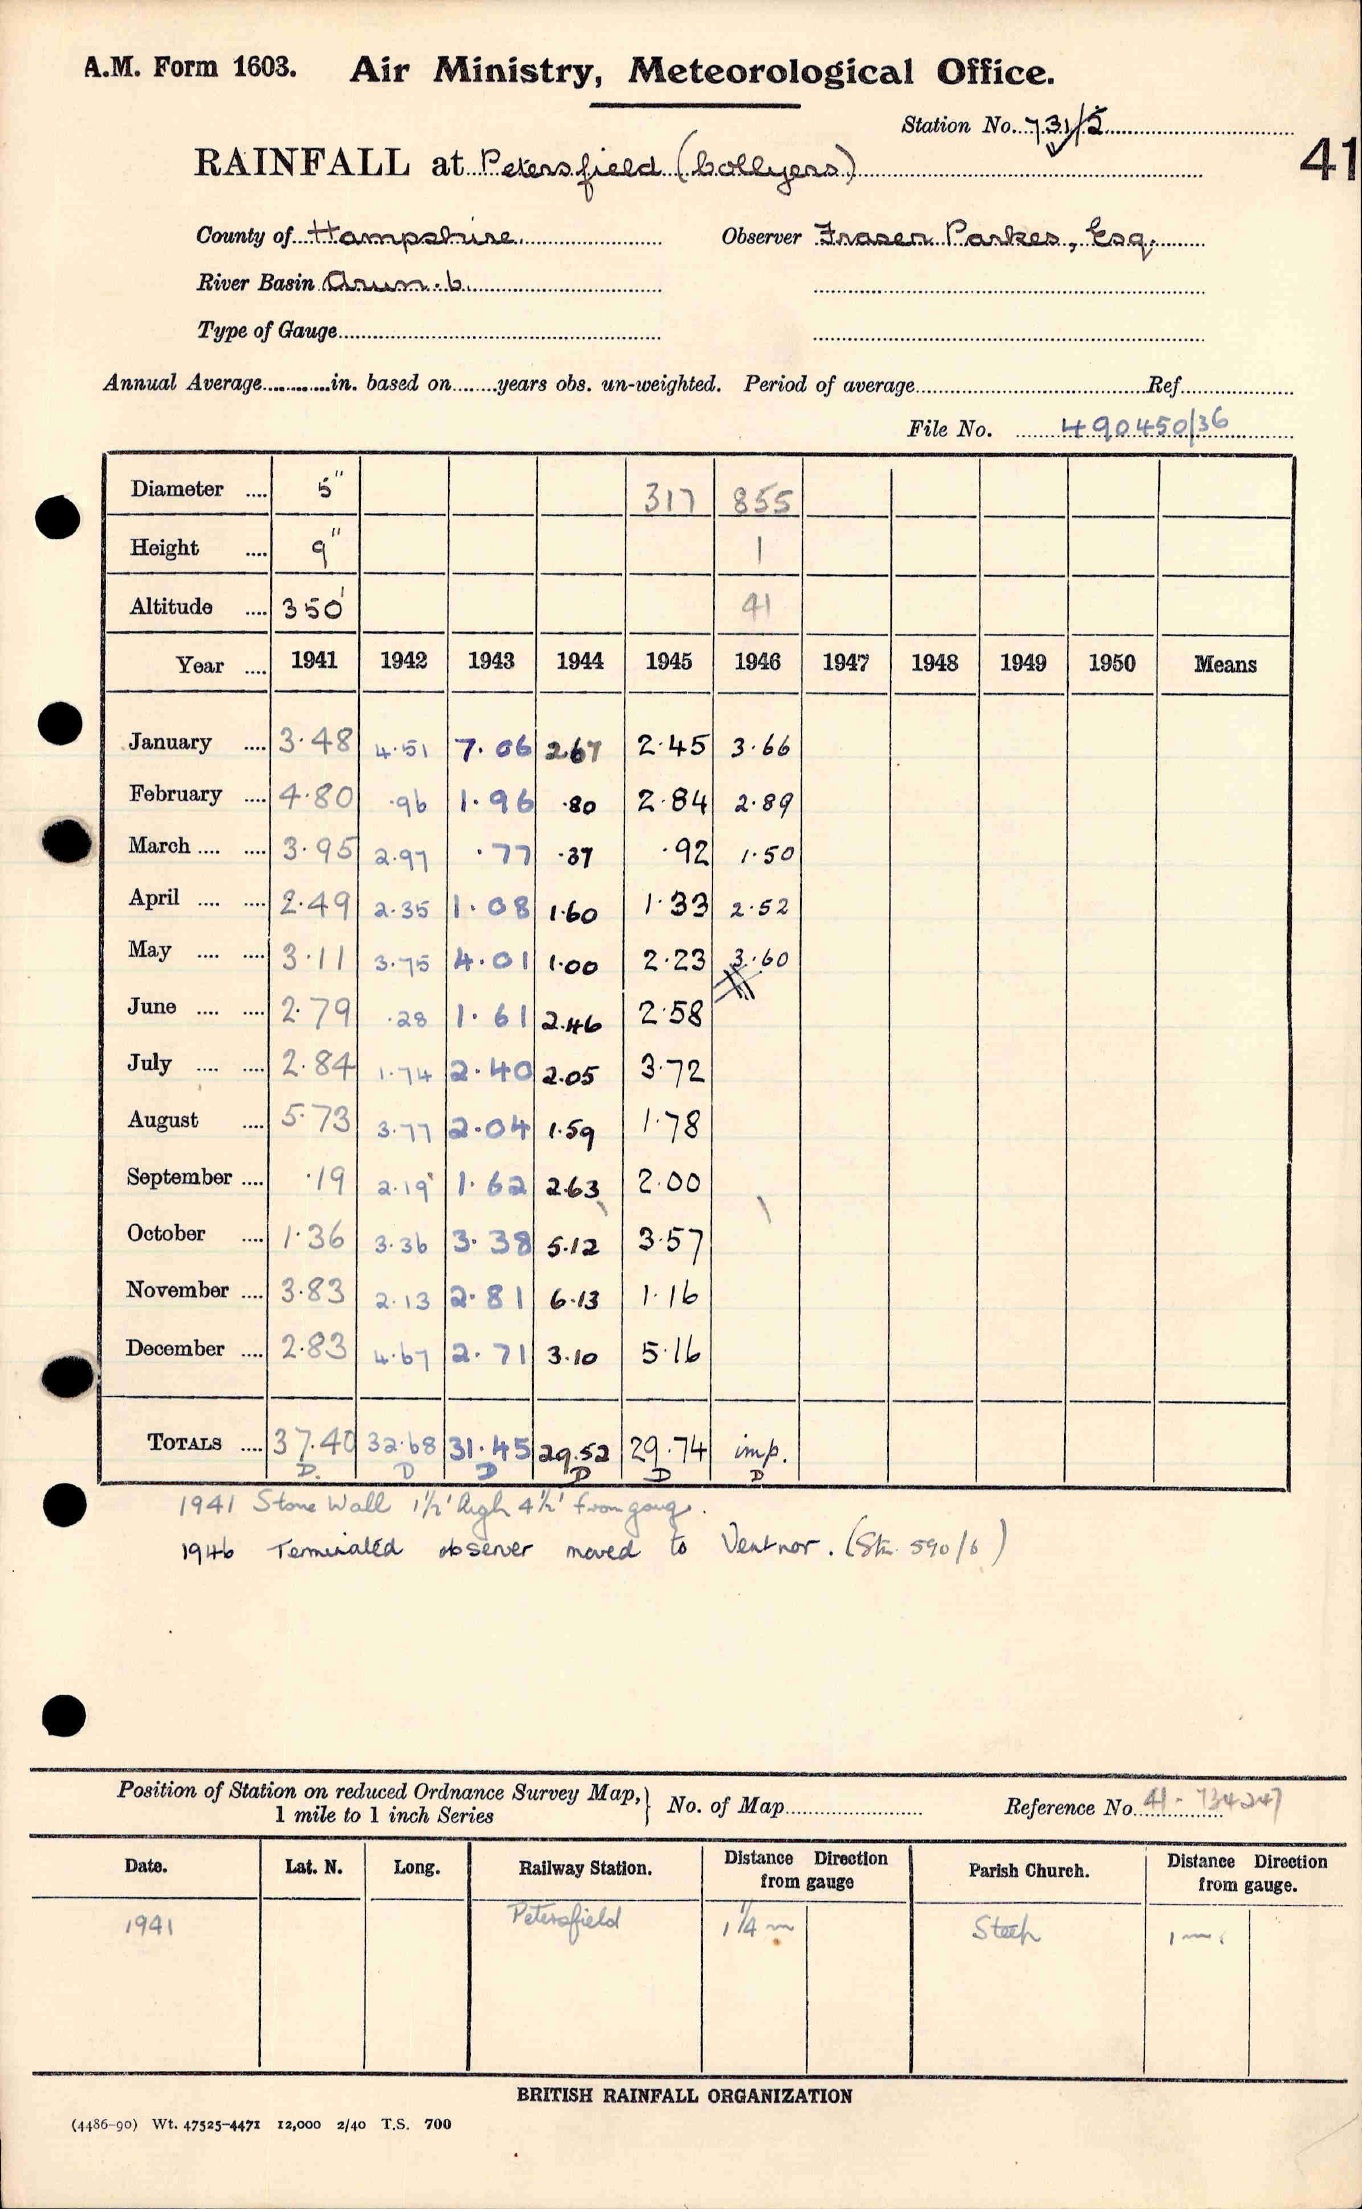 A.M. Form 1603. Air Ministry, Meteorological Office.
Station No. 731/5
41
RAINFALL at Petersfield (Collyers)
County of Hampshire. Observer Fraser Parkes, Esq.
River Basin Arun. b.
Type of Gauge
Annual Average in. based on years obs. un-weighted. Period of average Ref
File No. 490450/36
Diameter 5" 317 855
Height 9" 1
Altitude 350' 41
Year 1941 1942 1943 1944 1945 1946 1947 1948 1949 1950 Means
January 3.48 4.51 7.06 2.67 2.45 3.66
February 4.80 .96 1.96 .80 2.84 2.89
March 3.95 2.97 .77 .37 .92 1.50
April 2.49 2.35 1.08 1.60 1.33 2.52
May 3.11 3.75 4.01 1.00 2.23 3.60
June 2.79 .28 1.61 2.46 2.58
July 2.84 1.74 2.40 2.05 3.72
August 5.73 3.77 2.04 1.59 1.78
September .19 2.19 1.62 2.63 2.00
October 1.36 3.36 3.38 5.12 3.57
November 3.83 2.13 2.81 6.13 1.16
December 2.83 4.67 2.71 3.10 5.16
TOTALS 37.40 32.68 31.45 29.52 29.74 imp.
D. D D D D D
1941 Stone Wall 1½' high 4½' from gauge.
1946 Terminated observer moved to Ventnor. (Stn. 590/6)
Position of Station on reduced Ordnance Survey Map, 1 mile to 1 inch Series } No. of Map Reference No. 41-734247
Date. Lat. N. Long. Railway Station. Distance Direction from gauge Parish Church. Distance Direction from gauge.
1941 Petersfield 1¼ m Steep 1 m.
BRITISH RAINFALL ORGANIZATION
(4486-90) Wt. 47525-4471 12,000 2/40 T.S. 700